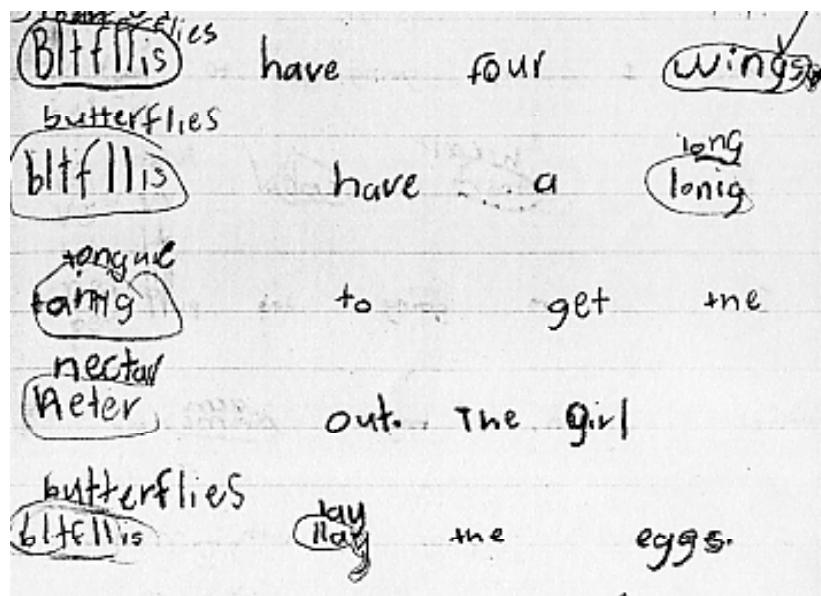 Bltfllis have four wings.
butterflies
bltfllis have a
long
lonig
tongue
to get the
nectar
neter out. The girl
butterflies
bltfllis
lay
llay the eggs.